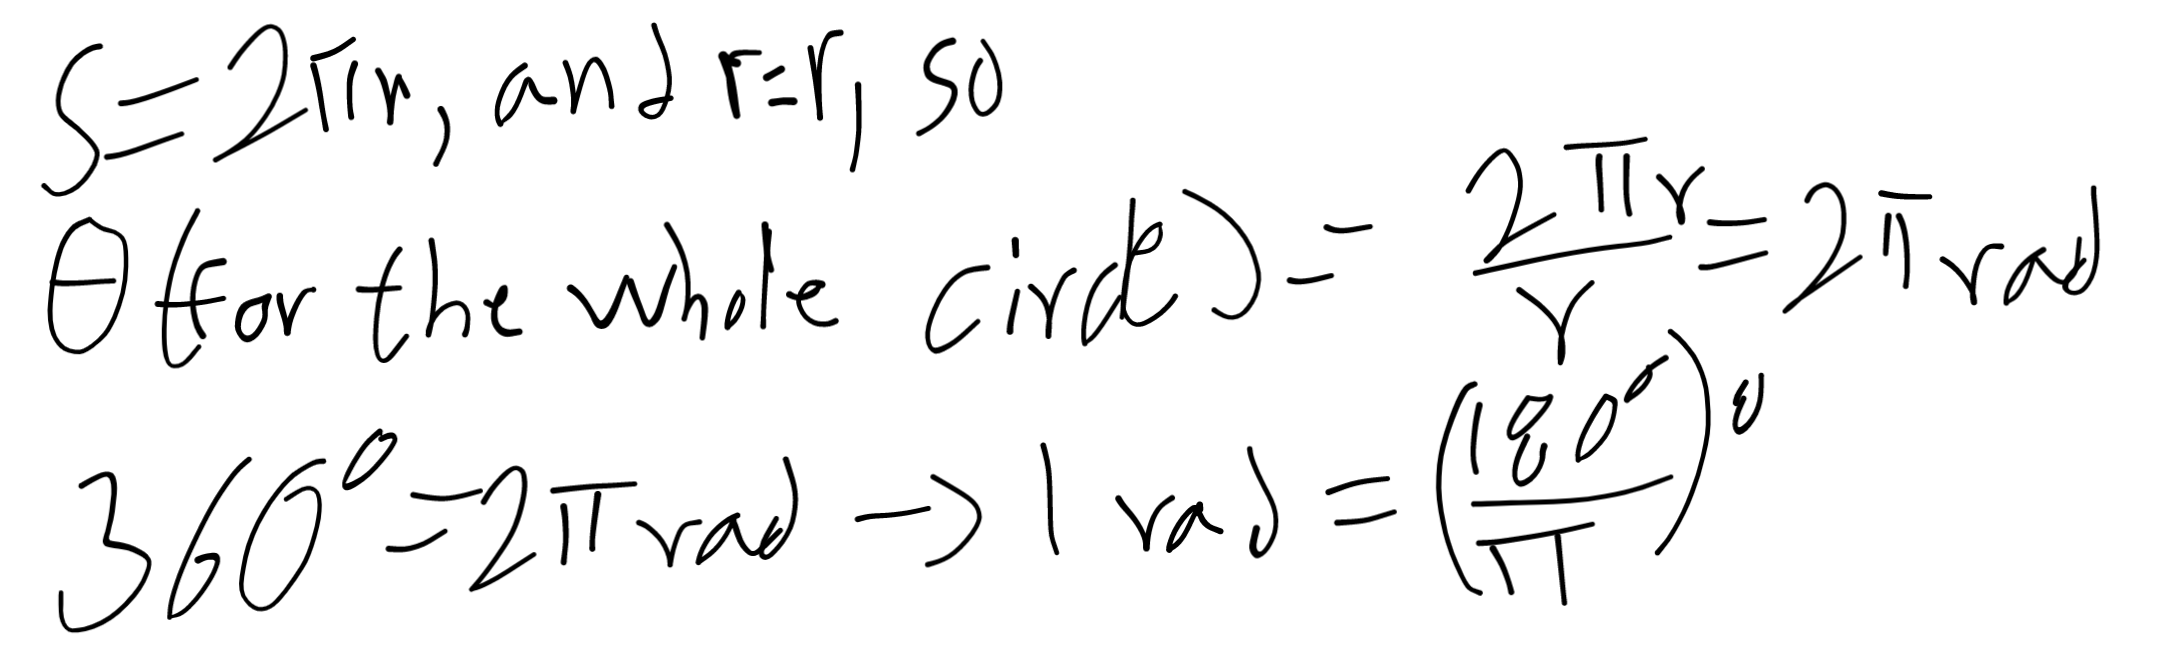 S = 2πr, and r = r, so
θ (for the whole circle) = 2πr/r = 2π rad
360° = 2π rad → 1 rad = (180°/π)°